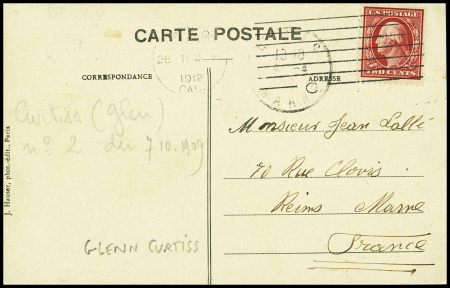 CARTE POSTALE
CORRESPONDANCE
ADRESSE
1912
CAL
U.S. POSTAGE
TWO CENTS
Curtiss (Glen)
n° 2 du 7 10.1909
GLENN CURTISS
J. Hauser, phot.-édit., Paris
Monsieur Jean
70 Rue Clovis
Reims Marne
France